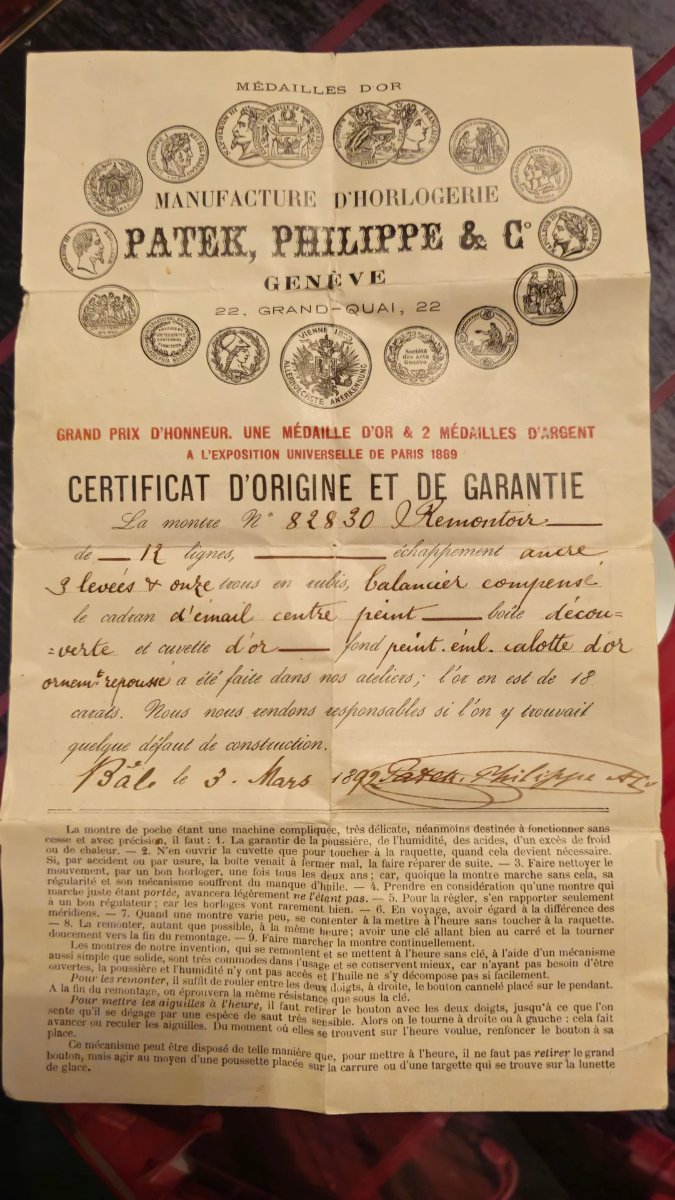 MÉDAILLES D'OR
MANUFACTURE D'HORLOGERIE
PATEK, PHILIPPE & Cº
GENÈVE
22, GRAND-QUAI, 22
NAPOLEON III
VIENNE 1873
ALLERHOECHSTE ANERKENNUNG
Société des Arts Genève
GRAND PRIX D'HONNEUR. UNE MÉDAILLE D'OR & 2 MÉDAILLES D'ARGENT
A L'EXPOSITION UNIVERSELLE DE PARIS 1889
CERTIFICAT D'ORIGINE ET DE GARANTIE
La montre Nº 82830 Remontoir
de 12 lignes, échappement ancre
3 levées & onze trous en rubis, balancier compensé
le cadran d'émail centre peint boîte décou=
=verte et cuvette d'or fond peint. éml. calotte d'or
ornemt repoussé a été faite dans nos ateliers; l'or en est de 18
carats. Nous nous rendons responsables si l'on y trouvait
quelque défaut de construction.
Bâle le 3. Mars 1892 Patek, Philippe & Co
La montre de poche étant une machine compliquée, très délicate, néanmoins destinée à fonctionner sans
cesse et avec précision, il faut: 1. La garantir de la poussière, de l'humidité, des acides, d'un excès de froid
ou de chaleur. — 2. N'en ouvrir la cuvette que pour toucher à la raquette, quand cela devient nécessaire.
Si, par accident ou par usure, la boîte venait à fermer mal, la faire réparer de suite. — 3. Faire nettoyer le
mouvement, par un bon horloger, une fois tous les deux ans; car, quoique la montre marche sans cela, sa
régularité et son mécanisme souffrent du manque d'huile. — 4. Prendre en considération qu'une montre qui
marche juste étant portée, avancera légèrement ne l'étant pas. — 5. Pour la régler, s'en rapporter seulement
à un bon régulateur; car les horloges vont rarement bien. — 6. En voyage, avoir égard à la différence des
méridiens. — 7. Quand une montre varie peu, se contenter à la mettre à l'heure sans toucher à la raquette.
— 8. La remonter, autant que possible, à la même heure; avoir une clé allant bien au carré et la tourner
doucement vers la fin du remontage. — 9. Faire marcher la montre continuellement.
Les montres de notre invention, qui se remontent et se mettent à l'heure sans clé, à l'aide d'un mécanisme
aussi simple que solide, sont très commodes dans l'usage et se conservent mieux, car n'ayant pas besoin d'être
ouvertes, la poussière et l'humidité n'y ont pas accès et l'huile ne s'y décompose pas si facilement.
Pour les remonter, il suffit de rouler entre les deux doigts, à droite, le bouton cannelé placé sur le pendant.
A la fin du remontage, on éprouvera la même résistance que sous la clé.
Pour mettre les aiguilles à l'heure, il faut retirer le bouton avec les deux doigts, jusqu'à ce que l'on
sente qu'il se dégage par une espèce de saut très sensible. Alors on le tourne à droite ou à gauche: cela fait
avancer ou reculer les aiguilles. Du moment où elles se trouvent sur l'heure voulue, renfoncer le bouton à sa
place.
Ce mécanisme peut être disposé de telle manière que, pour mettre à l'heure, il ne faut pas retirer le grand
bouton, mais agir au moyen d'une poussette placée sur la carrure ou d'une targette qui se trouve sur la lunette
de glace.